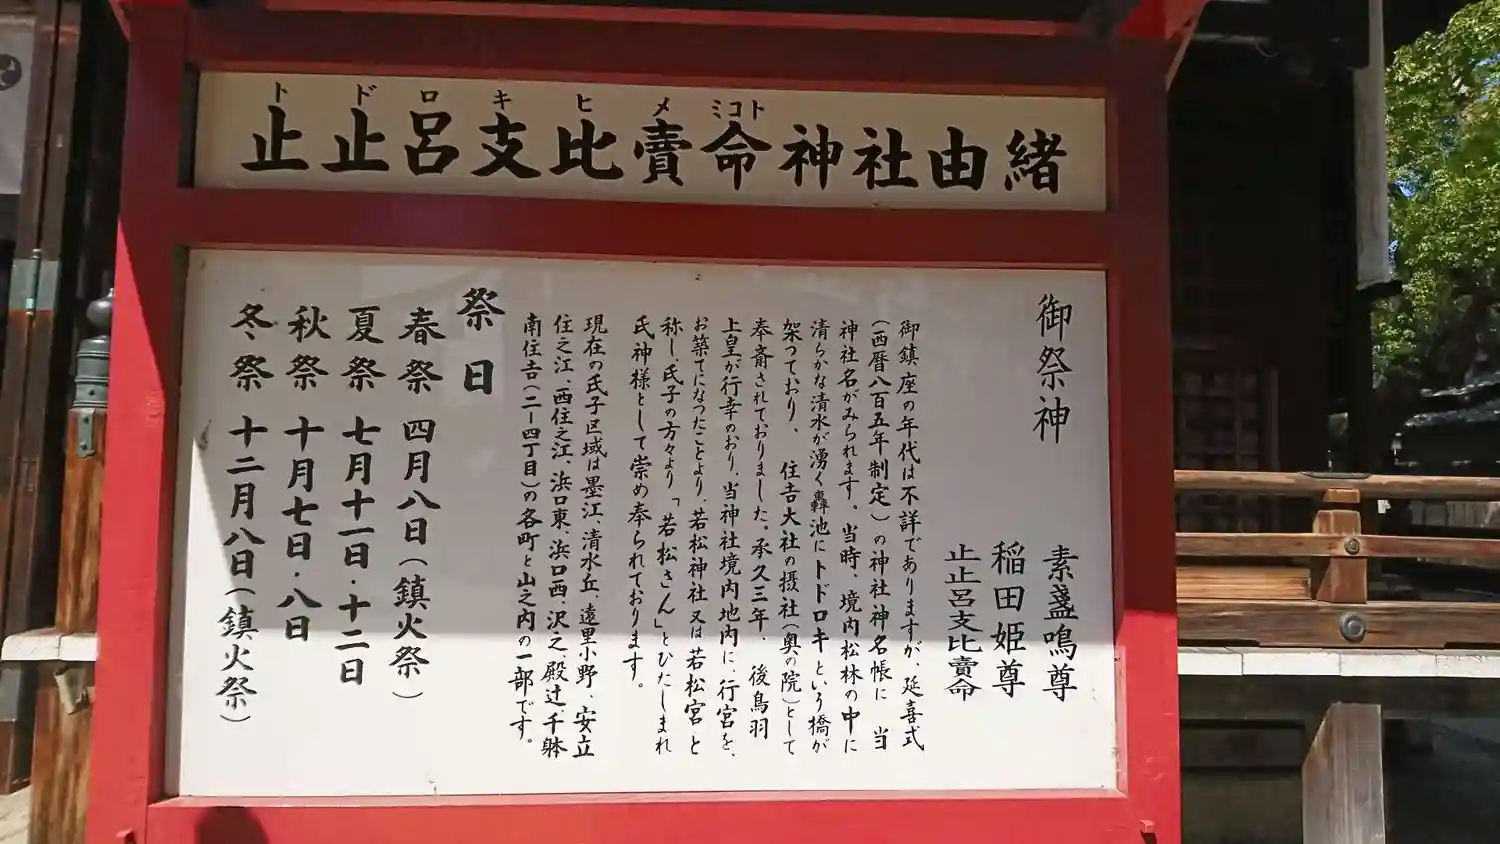 トドロキヒメミコト
止止呂支比賣命神社由緒
御祭神
素盞嗚尊
稲田姫尊
止止呂支比賣命
御鎮座の年代は不詳でありますが、延喜式
(西暦八百五年制定)の神社神名帳に 当
神社名がみられます。当時、境内松林の中に
清らかな清水が湧く轟池にトドロキという橋が
架つており、 住吉大社の摂社(奥の院)として
奉斎されておりました。承久三年、 後鳥羽
上皇が行幸のおり、当神社境内地内に、行宮を、
お築てになつたことより、若松神社又は若松宮と
称し、氏子の方々より、「若松さん」とひたしまれ
氏神様として崇め奉られております。
現在の氏子区域は墨江、清水丘、遠里小野、安立
住之江、西住之江、浜口東、浜口西、沢之、殿辻、千躰
南住吉(二ー四丁目)の各町と山之内の一部です。
祭日
春祭 四月八日(鎮火祭)
夏祭 七月十一日・十二日
秋祭 十月七日・八日
冬祭 十二月八日(鎮火祭)